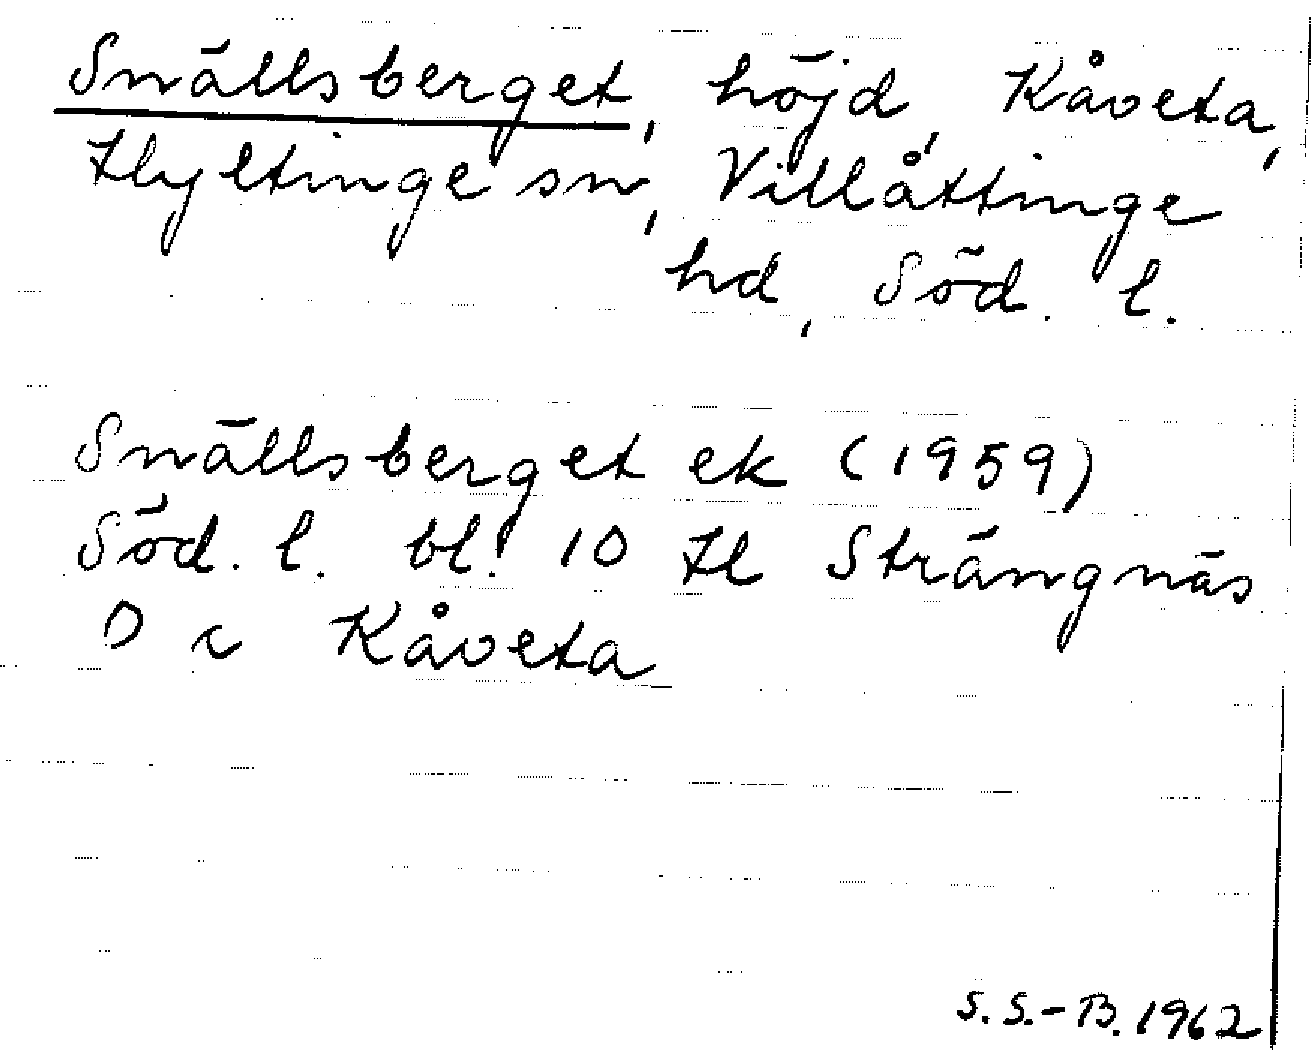 Snällsberget, höjd, Kåveta,
Hyltinge sn, Villåttinge
hd, Söd. l.
Snällsberget ek (1959)
Söd. l. bl. 10 H Strängnäs
O c Kåveta
S.S.-B. 1962